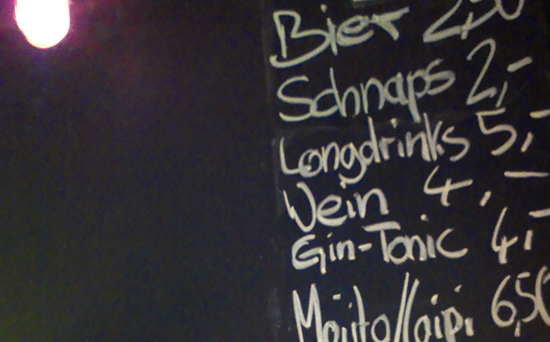 Bier 2,50
Schnaps 2,-
Longdrinks 5,-
Wein 4,-
Gin-Tonic 4,-
Mojito/Caipi 6,50